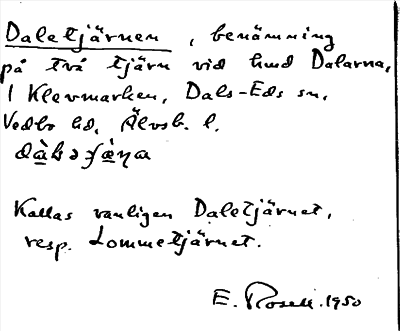 Daletjärnen, benämning
på två tjärn vid hmd Dalarna,
i Klevmarken, Dals-Eds sn,
Vedbo hd, Älvsb. l.
Kallas vanligen Daletjärnet,
resp. Lommetjärnet.
E. Rosell. 1950